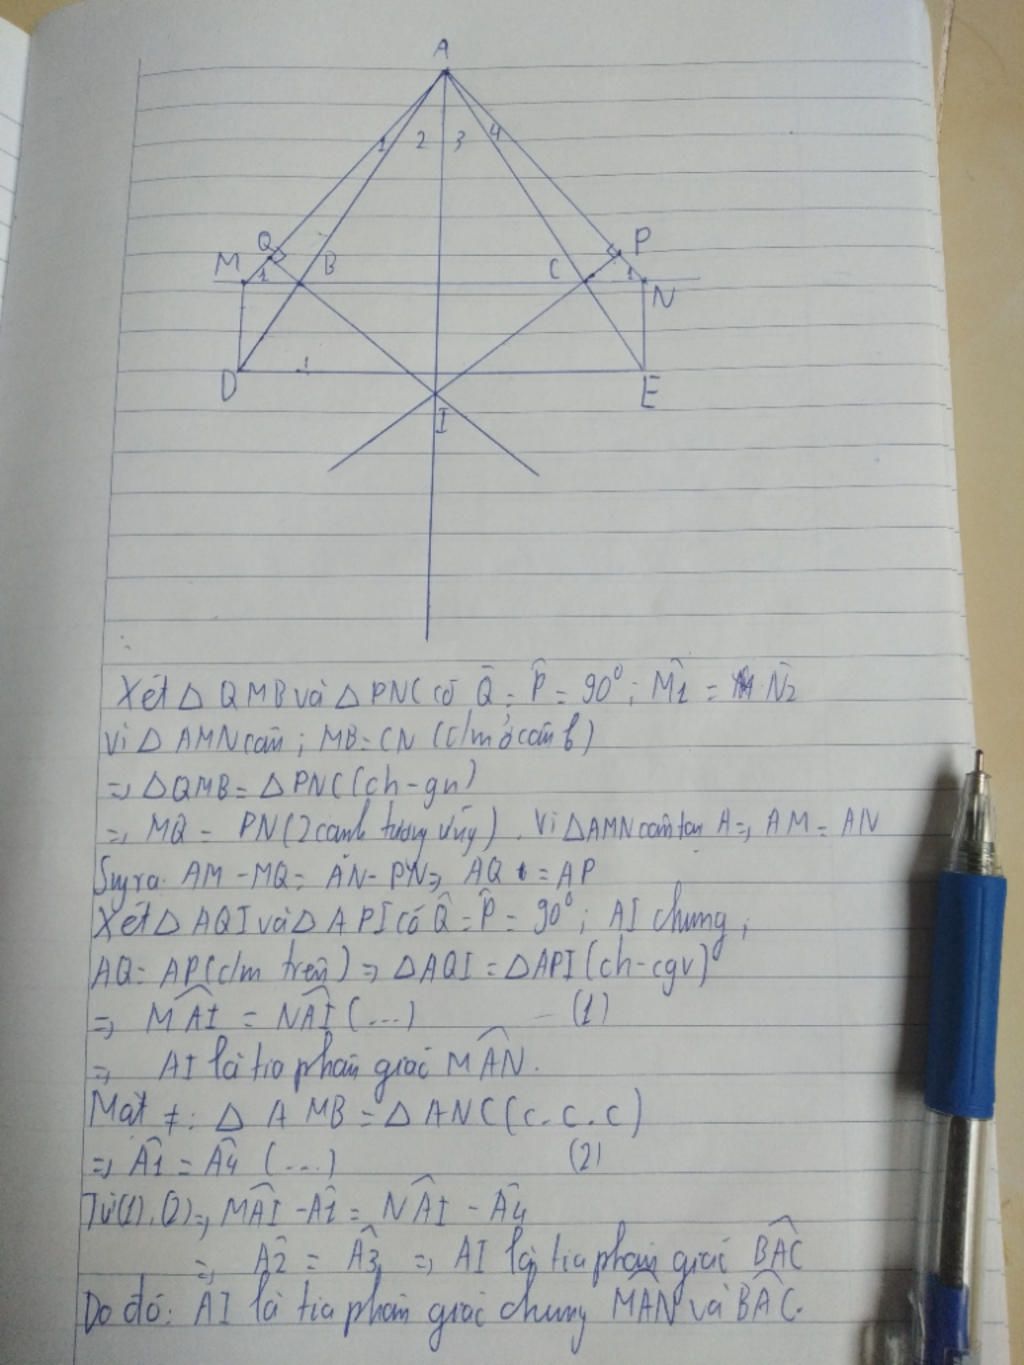 A
1 2 3 4
Q P
M 1 B C 1 N
D E
I
Xét △ QMB và △ PNC có Q̂ = P̂ = 90⁰ ; M̂1 = N̂2
Vì △ AMN cân ; MB = CN (c/m ở câu b)
=> △QMB = △PNC (ch-gn)
=> MQ = PN (2 cạnh tương ứng). Vì △AMN cân tại A => AM = AN
Suy ra. AM - MQ = AN - PN => AQ = AP
Xét △ AQI và △ API có Q̂ = P̂ = 90⁰ ; AI chung ;
AQ = AP (c/m trên) => △AQI = △API (ch-cgv)
=> MÂI = NÂI (...) (1)
=> AI là tia phân giác MÂN.
Mặt ≠: △ AMB = △ANC (c.c.c)
=> Â1 = Â4 (...) (2)
Từ (1), (2) => MÂI - Â1 = NÂI - Â4
=> Â2 = Â3 => AI là tia phân giác BÂC
Do đó: AI là tia phân giác chung MÂN và BÂC.